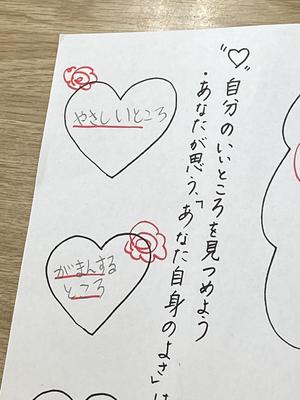 "♡" 自分のいいところを見つめよう
・あなたが思う、「あなた自身のよさ」は
やさしいところ
がまんする
ところ